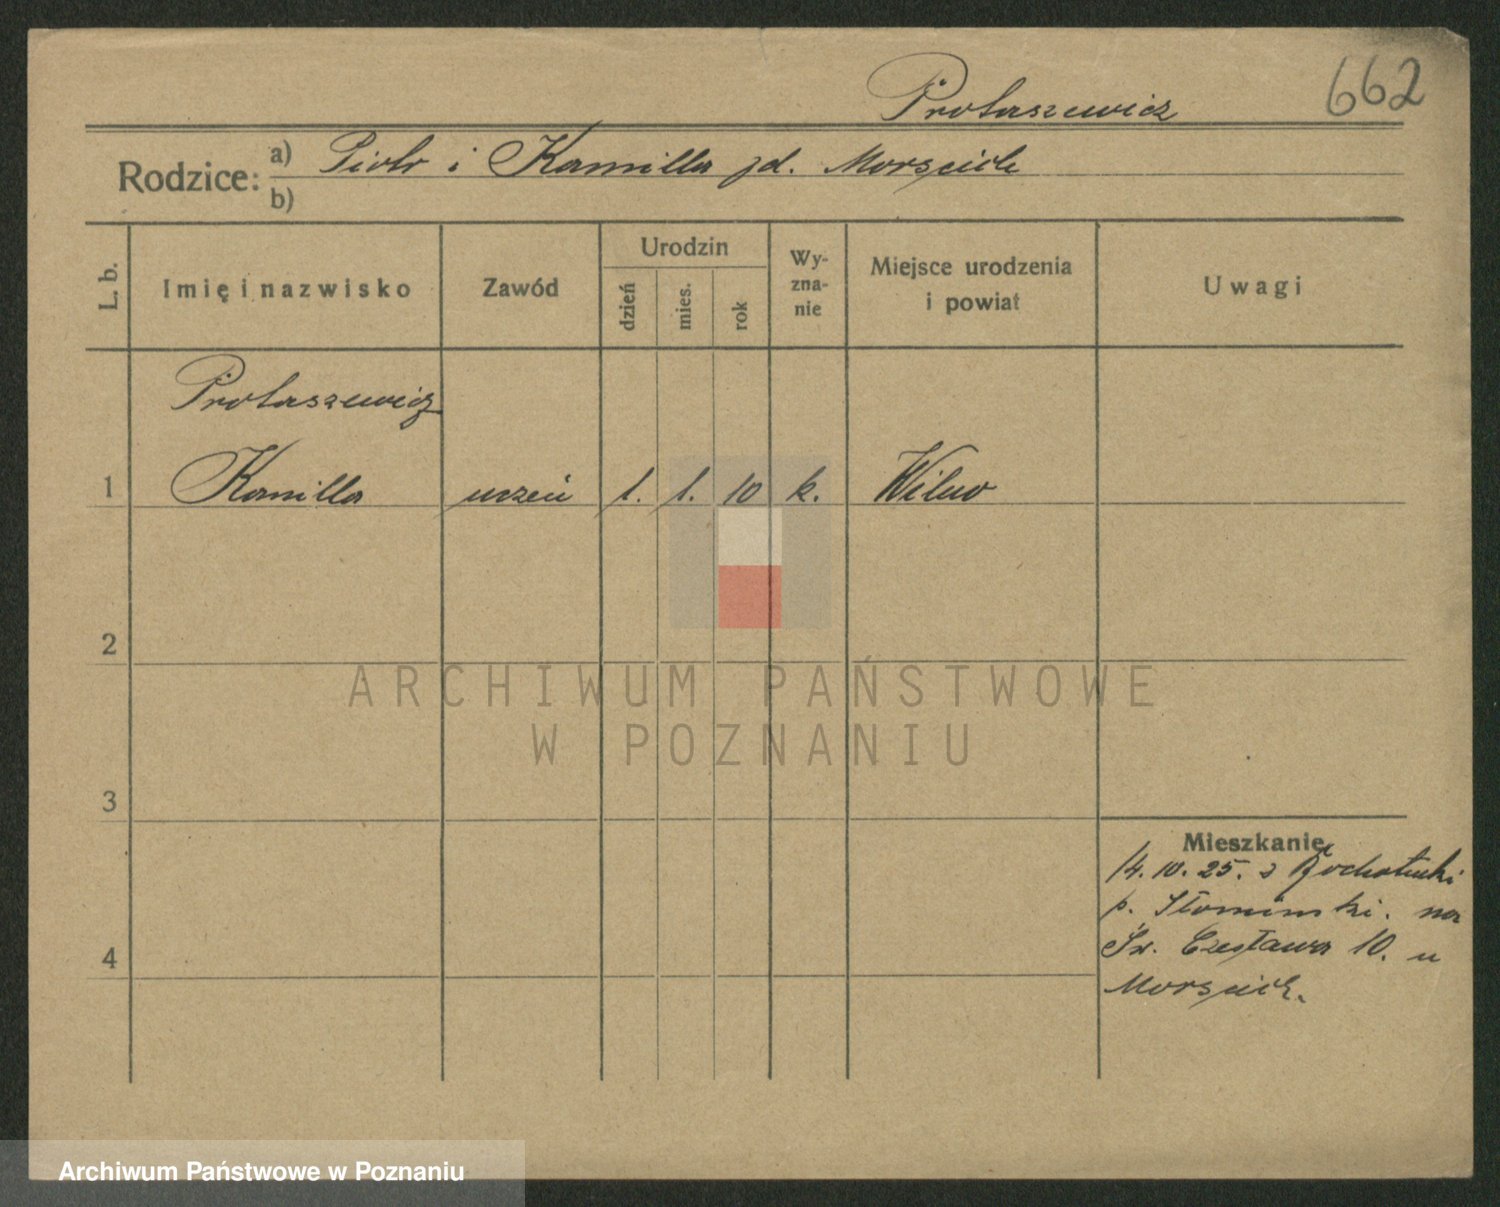 662
Protaszewicz
Rodzice: a) Piotr i Kamilla zd. Morścich
b)
L. b. Imię i nazwisko Zawód Urodzin dzień mies. rok Wyznanie Miejsce urodzenia i powiat Uwagi
Protaszewicz
1 Kamilla uczeń 1. 1. 10 k. Wilno
2
ARCHIWUM PAŃSTWOWE
W POZNANIU
3
Mieszkanie
14. 10. 25. z
p. na
4 Św. Czesława 10. u
Morścich.
Archiwum Państwowe w Poznaniu